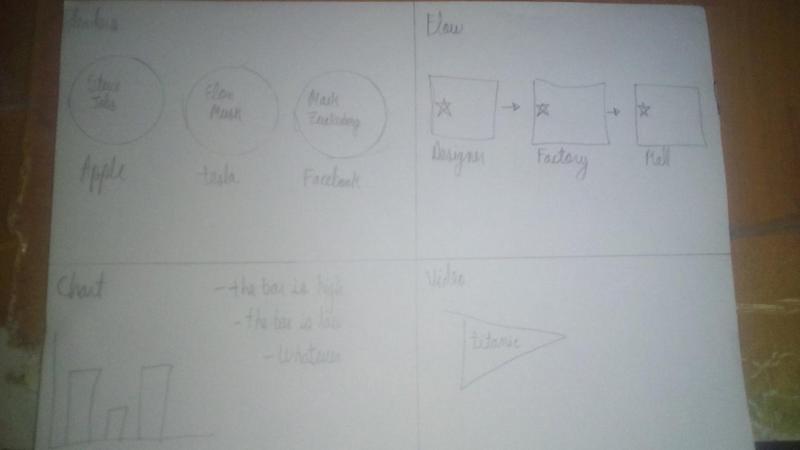 Steve
Jobs
Elon
Musk
Mark
Zuckerberg
Apple
tesla
Facebook
Flow
Designer
Factory
Mall
Chart
- the bar is high
- the bar is low
- Whatever
Video
titanic